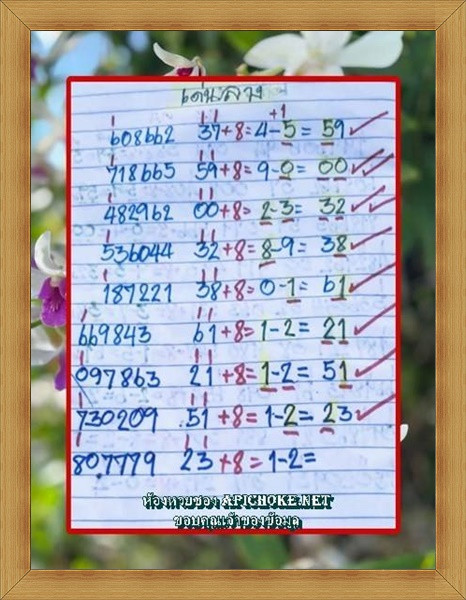 เด่นล่าง
+1
608662 37+8=4-5= 59
718665 59+8=9-0= 00
482962 00+8=2-3= 32
536044 32+8=8-9= 38
187221 38+8=0-1= 61
669843 61+8=1-2= 21
097863 21+8=1-2= 51
730209 51+8=1-2= 23
807779 23+8=1-2=
ห้องหวยซอง APICHOKE.NET
ขอบคุณเจ้าของข้อมูล